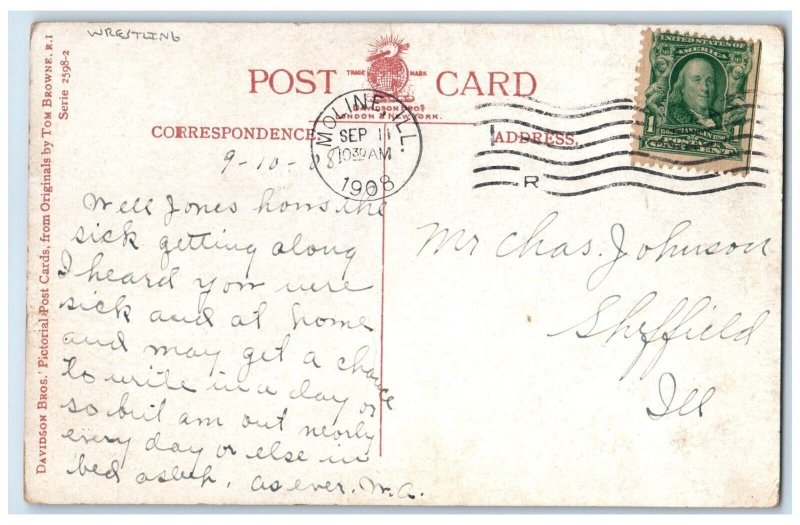 WRESTLING
POST CARD
TRADE MARK
DAVIDSON BROS
LONDON & NEW YORK.
CORRESPONDENCE
ADDRESS.
MOLINE, ILL.
SEP 11
1030 AM
1908
R
UNITED STATES OF
AMERICA
1
POSTAGE
ONE CENT
DAVIDSON BROS.' Pictorial Post Cards, from Originals by TOM BROWNE, R.I
Serie 2598-2
9-10-08
Well Jones hows the
sick getting along
I heard you were
sick and at home
and may get a chance
to write in a day or
so but am out nearly
every day or else in
bed asleep. as ever. M.A.
Mr Chas. Johnson
Sheffield
Ill